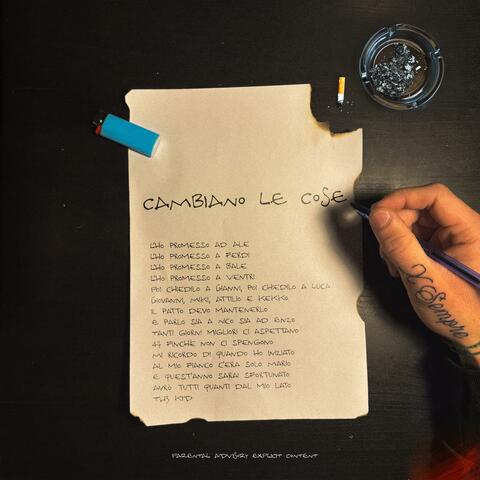 CAMBIANO LE COSE
L'HO PROMESSO AD ALE
L'HO PROMESSO A FERDI
L'HO PROMESSO A BALE
L'HO PROMESSO A VENTRI
POI CHIEDILO A GIANNI, POI CHIEDILO A LUCA
GIOVANNI, MIKI, ATTILIO E KEKKO
IL PATTO DEVO MANTENERLO
E PARLO SIA A NICO SIA AD ENZO
TANTI GIORNI MIGLIORI CI ASPETTANO
47 FINCHE NON CI SPENGONO
MI RICORDO DI QUANDO HO INIZIATO
AL MIO FIANCO C'ERA SOLO MARIO
E QUEST'ANNO SARAI SFORTUNATO
AVRÒ TUTTI QUANTI DAL MIO LATO
Sempre
PARENTAL ADVISORY EXPLICIT CONTENT